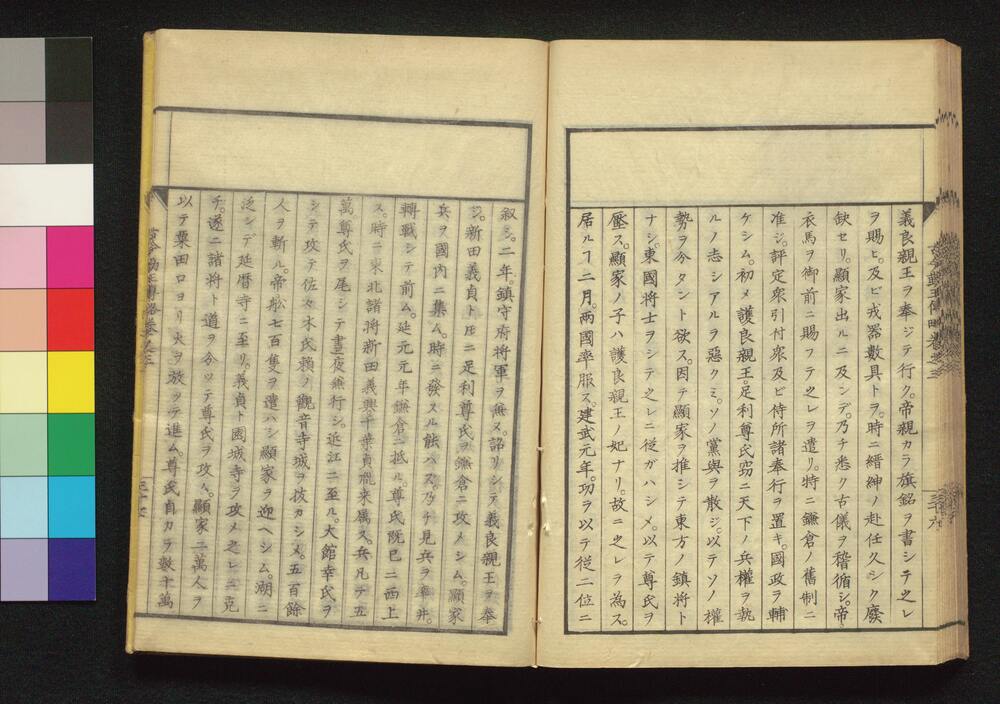 義良親王ヲ奉ジテ行ク。帝親カラ旗銘ヲ書シテ之レ
ヲ賜ヒ。及ビ戎器數具トヲ。時ニ縉紳ノ赴任久シク廢
缺セリ。顯家出ルニ及ンデ。乃チ悉ク古儀ヲ稽循シ。帝
衣馬ヲ御前ニ賜フテ之レヲ遣リ。特ニ鎌倉ノ舊制ニ
准ジ。評定衆引付衆及ビ侍所諸奉行ヲ置キ。國政ヲ輔
ケシム。初メ護良親王。足利尊氏窃ニ天下ノ兵權ヲ執
ルノ志シアルヲ惡クミ。ソノ黨與ヲ散ジ。以テソノ權
勢ヲ分タント欲ス。因テ顯家ヲ推シテ東方ノ鎮將ト
ナシ。東國將士ヲシテ之レニ從ガハシメ。以テ尊氏ヲ
壓ス。顯家ノ子ハ護良親王ノ妃ナリ。故ニ之レヲ為ス。
居ルヿ二月。兩國率服ス。建武元年。功ヲ以テ從二位ニ
叙シ。二年。鎮守府將軍ヲ兼ヌ。詔リシテ義良親王ヲ奉
ジ。新田義貞ト圧ニ足利尊氏ヲ鎌倉ニ攻メシム。顯家
兵ヲ國内ニ集ム。時ニ發スル能ハズ。乃チ見兵ヲ率井。
轉戰シテ前ム。延元元年鎌倉ニ抵ル。尊氏既已ニ西上
ス。時ニ東北諸將新田義興千葉貞胤来属ス。兵凡テ五
萬尊氏ヲ尾シテ晝夜兼行シ。近江ニ至ル。大館幸氏ヲ
シテ攻テ佐々木氏頼ノ觀音寺城ヲ抜カシメ。五百餘
人ヲ斬ル。帝舩七百隻ヲ遣ハシ顯家ヲ迎ヘシム。湖ニ
泛シデ延暦寺ニ至リ。義貞ト園城寺ヲ攻メ之レニ克
チ。遂ニ諸將ト道ヲ分ツテ尊氏ヲ攻ム。顯家二萬人ヲ
以テ粟田口ヨリ火ヲ放ッテ進ム。尊氏自カラ數十萬